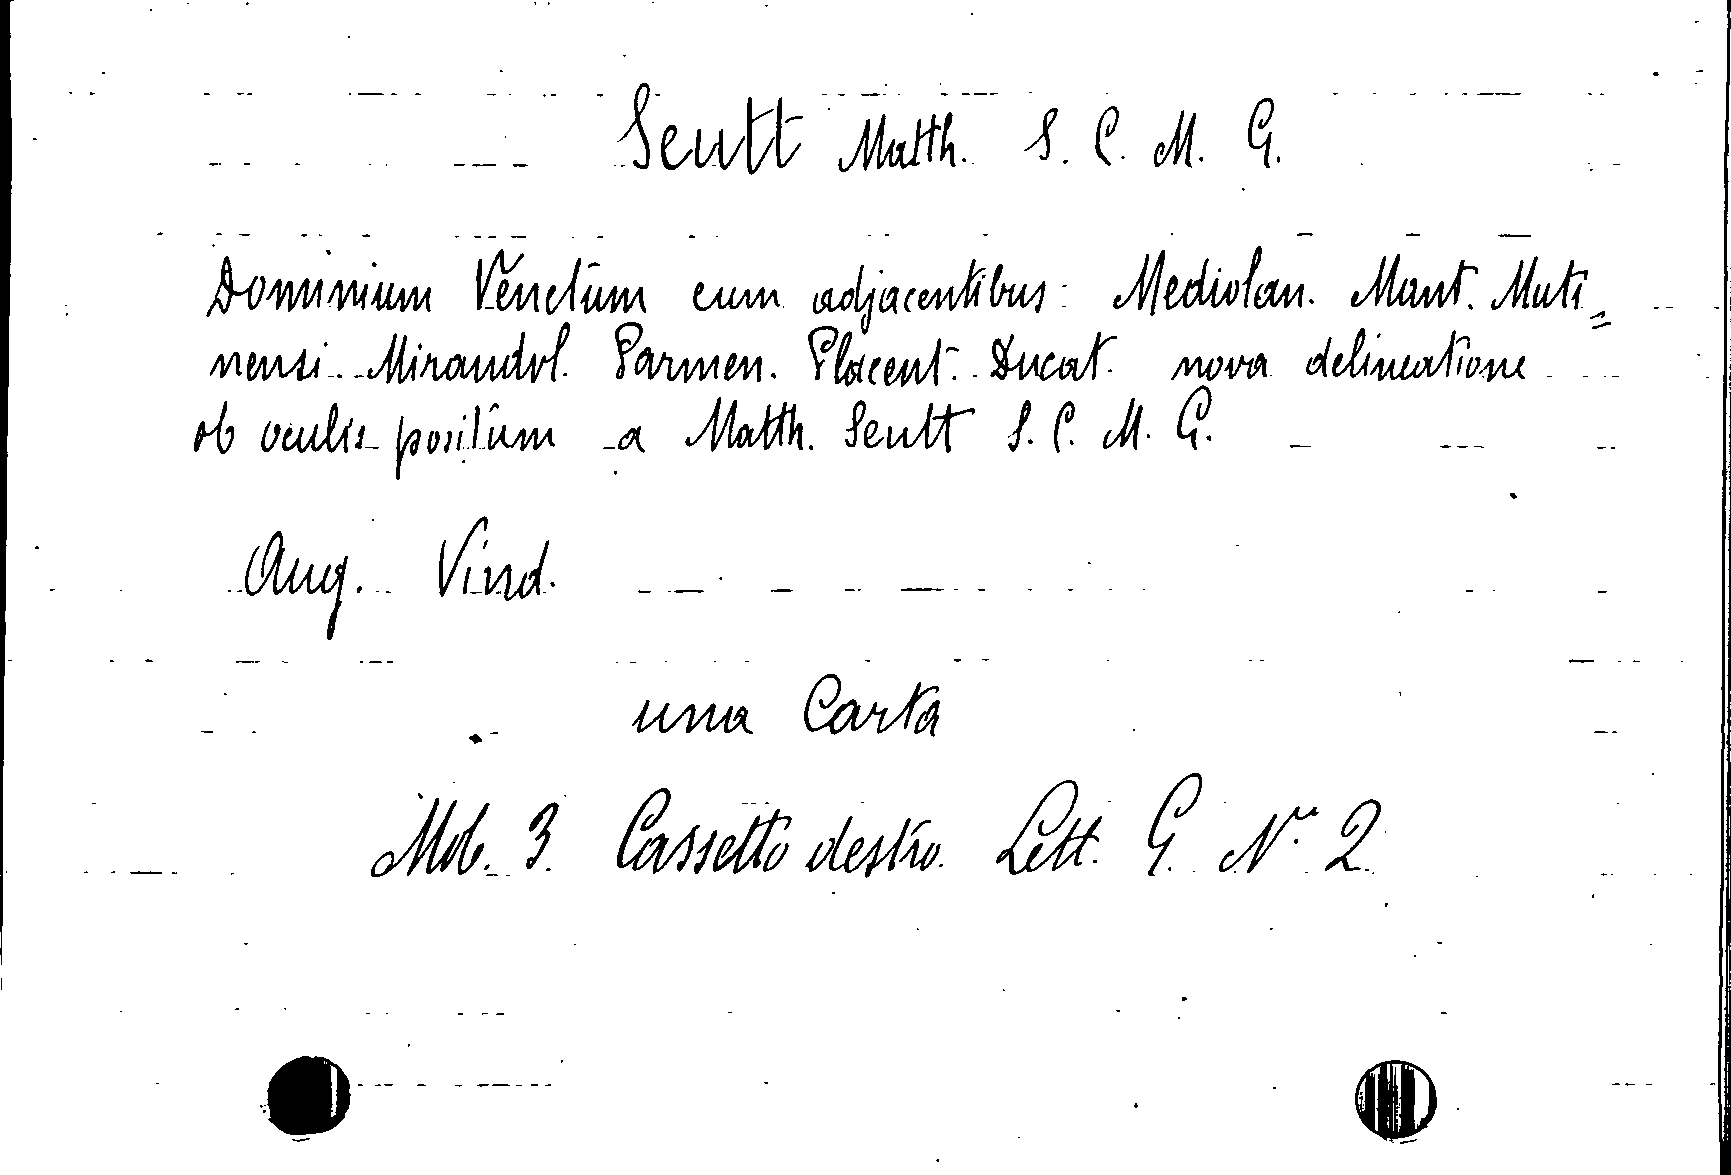 Seutt Matth. S. C. M. G.
Dominium Venetum cum adjacentibus: Mediolan. Mant. Muti=
nensi. Mirandol. Parmen. Placent. Ducat. nova delineatione
ob oculis positum a Matth. Seutt S. C. M. G.
Aug. Vind.
una Carta
Mob. 3. Cassetto destro. Lett. G. N.º 2